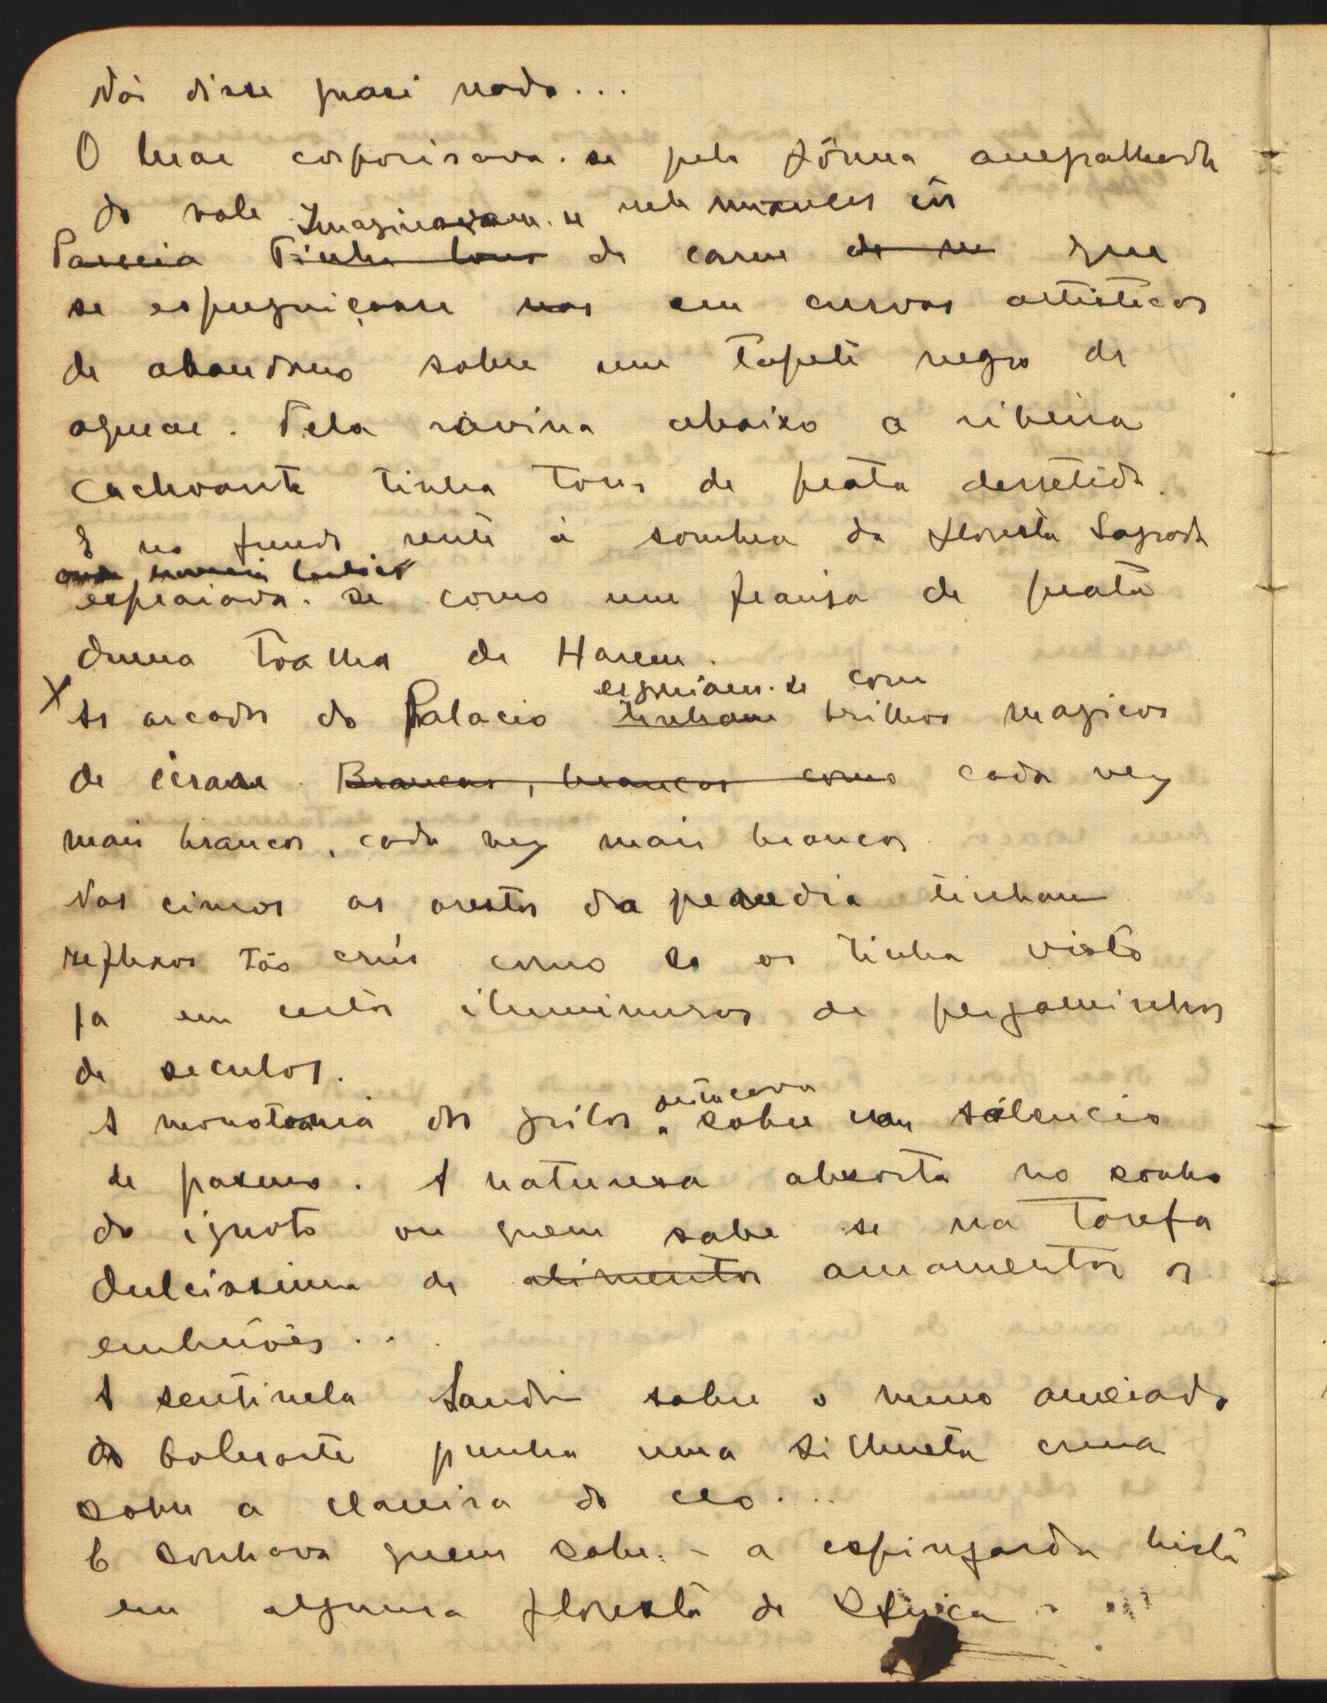 Não disse quasi nada...
O luar corporisava-se pela fórma
do vale Imaginavam-se
Parecia Tinha tons de carne que
se espreguiçasse nas em curvas artisticas
de abandono sobre um tapete negro de
aguas. Pela ravina abaixo a ribeira
cachoante tinha tons de prata derretida.
E no fundo rente á sombra da floresta sagrada
espraiava-se como uma franja de prata
duma toalha de Harem.
X As arcadas do Palacio tinham erguiam-se com brilhos magicos
de Brancas, brancas como cada vez
mais brancas, cada vez mais brancas
Nos cimos as arestas da penedia tinham
reflexos tão crús como se os tinha visto
já em certas iluminuras de pergaminhos
de seculos.
A monotonia dos grilos sobre um silencio
de pasmo. A naturesa absorta no sonho
do ignoto ou quem sabe se na tarefa
dulcissima de alimentar amamentar os
embriões...
A sentinela Landim sobre o muro ameiado
do baluarte punha uma silhueta crua
sobre a clareira do ceo...
E sonhava quem sabe - a espingarda
em alguma floresta de Africa...